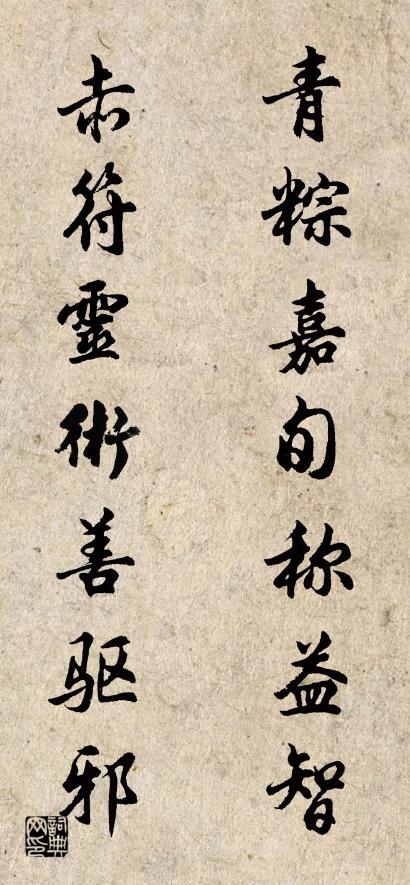 青粽嘉旬称益智
赤符靈術善驱邪
詞典
网印